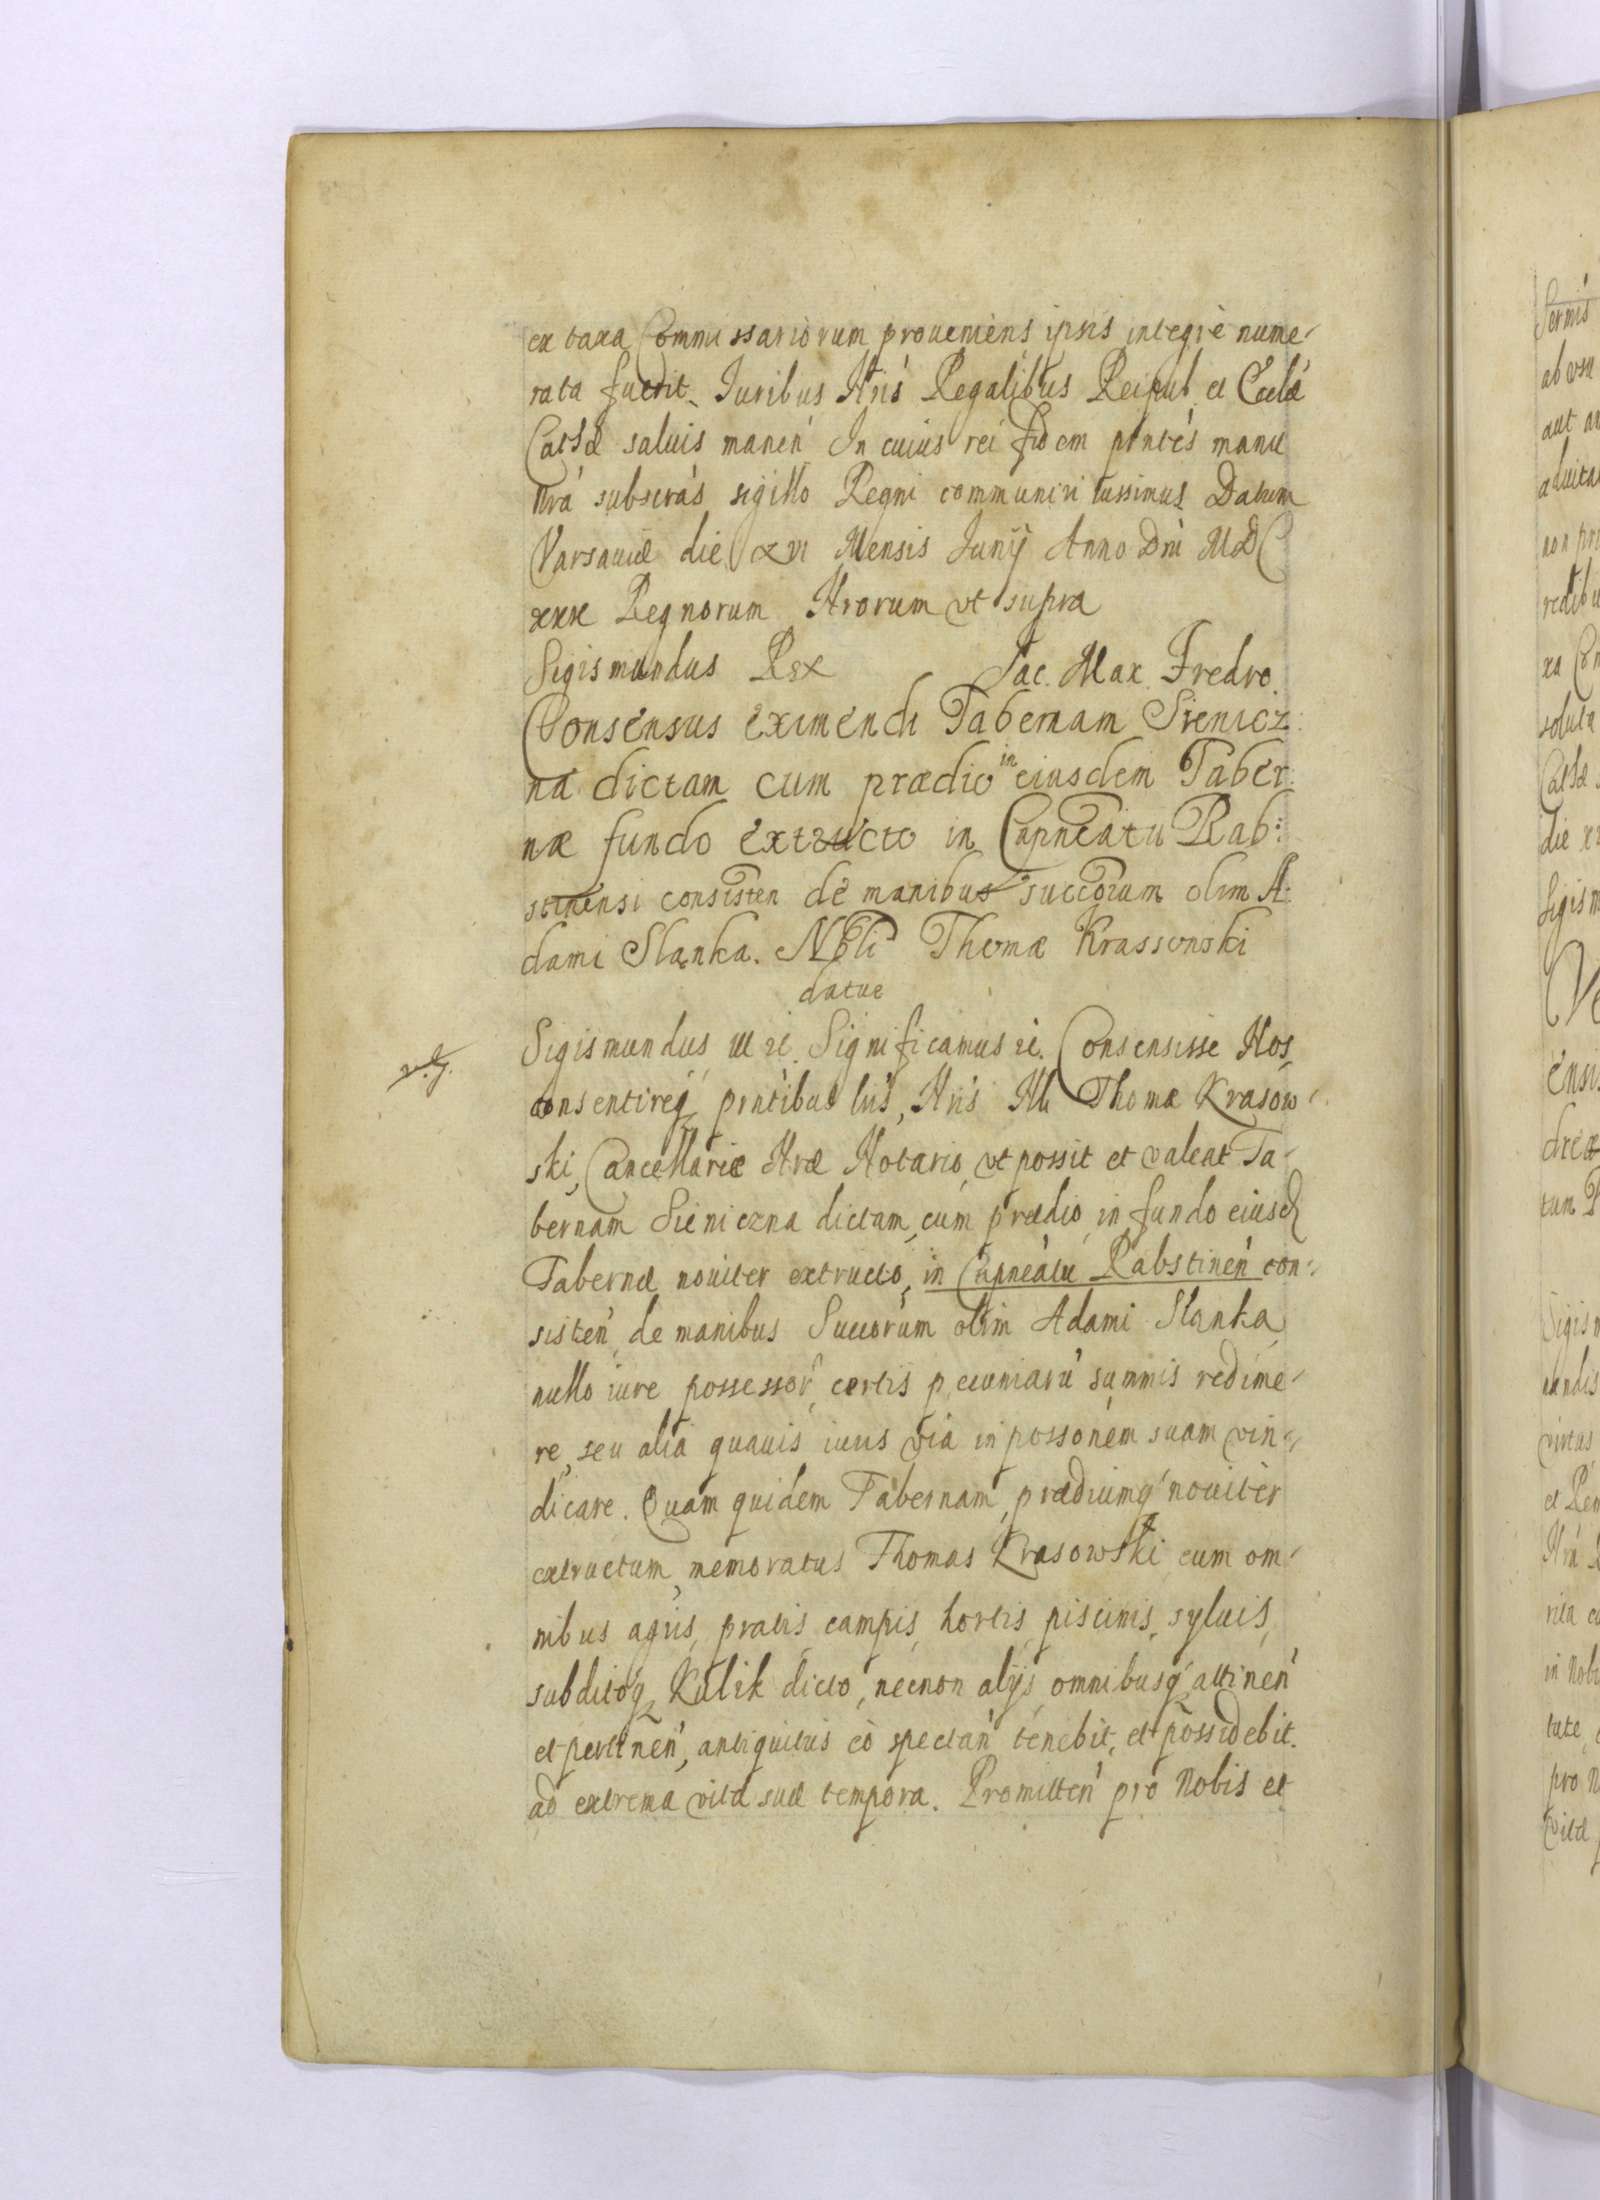 ex taxa Commissariorum proueniens ipsis integrè nume-
rata fuerit. Iuribus Nris Regalibus Reipub et Eccłæ
Cathæ saluis manen In cuius rei fidem pntes manu
Nrá subscrás sigillo Regni communiri iussimus Datum
Varsauiæ die XVI Mensis Iunij Anno Dni MDC
xxx Regnorum Nrorum vt supra
Sigismundus Rex Jac. Max. Fredro.
Consensus eximendi Tabernam Sienicz
na dictam cum prædio in eiusdem Taber
næ fundo extructo in Capneatu Rab:
stinensi consisten de manibus succorum olim A:
dami Slanka. Nobli Thomæ Krassowski
datur
Sigismundus III etc. Significamus etc. Consensisse Nos,
consentireq pntibus lris, Nris Nli Thomæ Krasow-
ski, Cancellariæ Nræ Notario, vt possit et valeat Ta-
bernam Sieniczna dictam, cum prædio, in fundo eiusd
Tabernæ nouiter extructo, in Capneatu Rabstinen con-
sisten, de manibus Succorum olim Adami Slanka,
nullo iure possessor, certis pecuniarū summis redime-
re, seu alia quauis iuris via in possonem suam vin-
dicare. Quam quidem Tabernam, prædiumq nouiter
extructum, memoratus Thomas Krasowski cum om-
nibus agris, pratis campis, hortis, piscinis, syluis,
subditoq Kulik dicto, necnon alijs omnibusq attinen
et pertinen, antiquitus eò spectan tenebit, et possidebit.
ad extrema vitæ suæ tempora. Promitten pro Nobis et